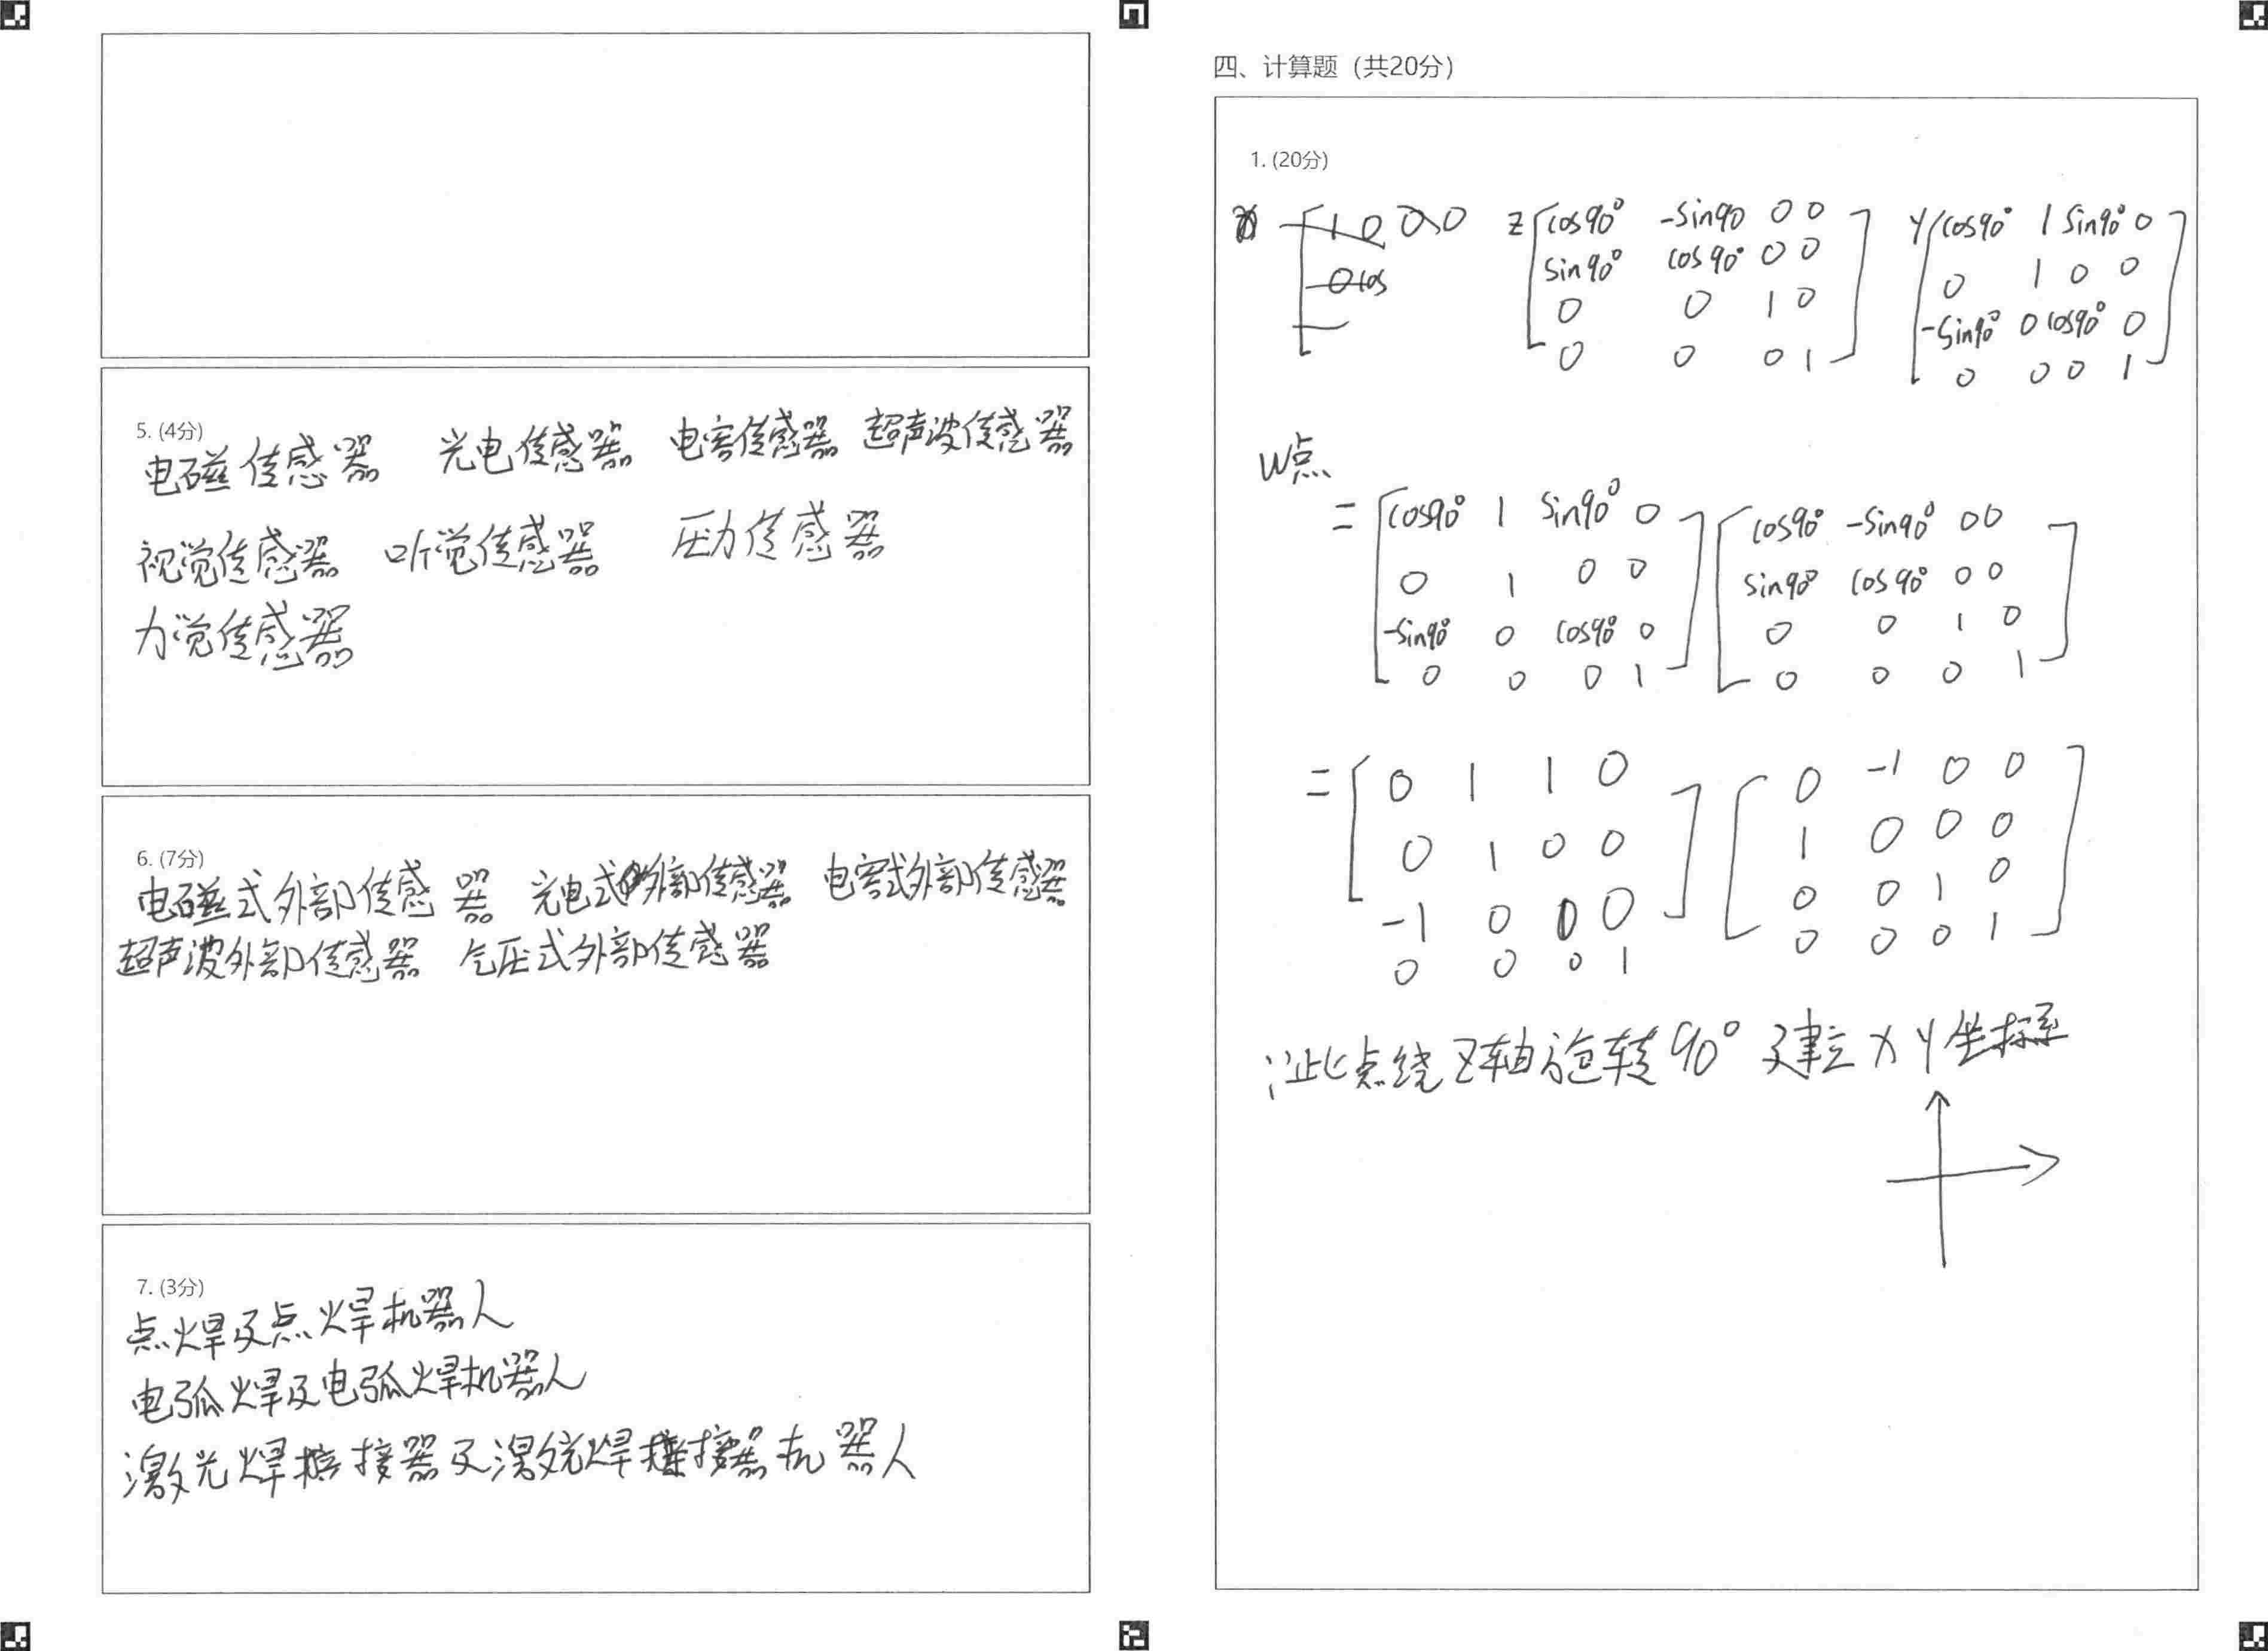 5. (4分)
电磁传感器 光电传感器 电容传感器 超声波传感器
视觉传感器 听觉传感器 压力传感器
力觉传感器
6. (7分)
电磁式外部传感器 光电式外部传感器 电容式外部传感器
超声波外部传感器 气压式外部传感器
7. (3分)
点焊及点焊机器人
电弧焊及电弧焊机器人
激光焊接器及激光焊接器机器人
四、计算题（共20分）
1. (20分)
1 0 0 0 Z cos90° -sin90 0 0 Y cos90° 1 sin90° 0
0 cos sin90° cos90° 0 0 0 1 0 0
0 0 1 0 -sin90° 0 cos90° 0
0 0 0 1 0 0 0 1
W点
= cos90° 1 sin90° 0 cos90° -sin90° 0 0
0 1 0 0 sin90° cos90° 0 0
-sin90° 0 cos90° 0 0 0 1 0
0 0 0 1 0 0 0 1
= 0 1 1 0 0 -1 0 0
0 1 0 0 1 0 0 0
-1 0 0 0 0 0 1 0
0 0 0 1 0 0 0 1
沿此点绕Z轴旋转90° 建立XY坐标系